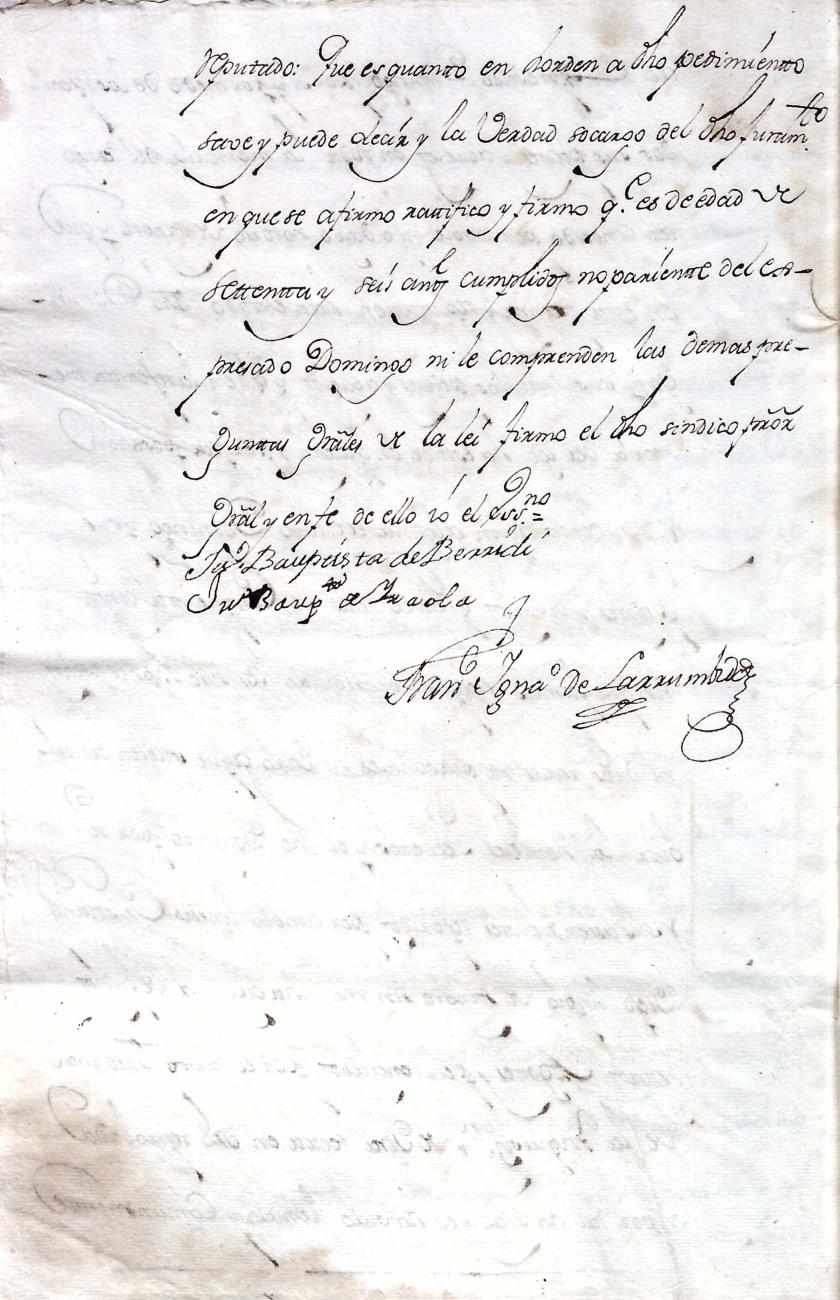 reputado: Que es quanto en horden a dho pedimientto
save y puede decir y la Verdad socargo del dho juram.to
en que se afirmo rattifico y firmo q.e es de edad de
settentta y seis años cumplidos no pariente del es-
presado Domingo ni le comprenden las demas pre-
guntas Grâles de la leí firmo el dho sindico prôr
Grâl y en fe de ello io el ess.no =
Jn Bauptista de Berridi
Jn Baup.ta de Yraola
Fran.co Ygna.o de Larrumbide